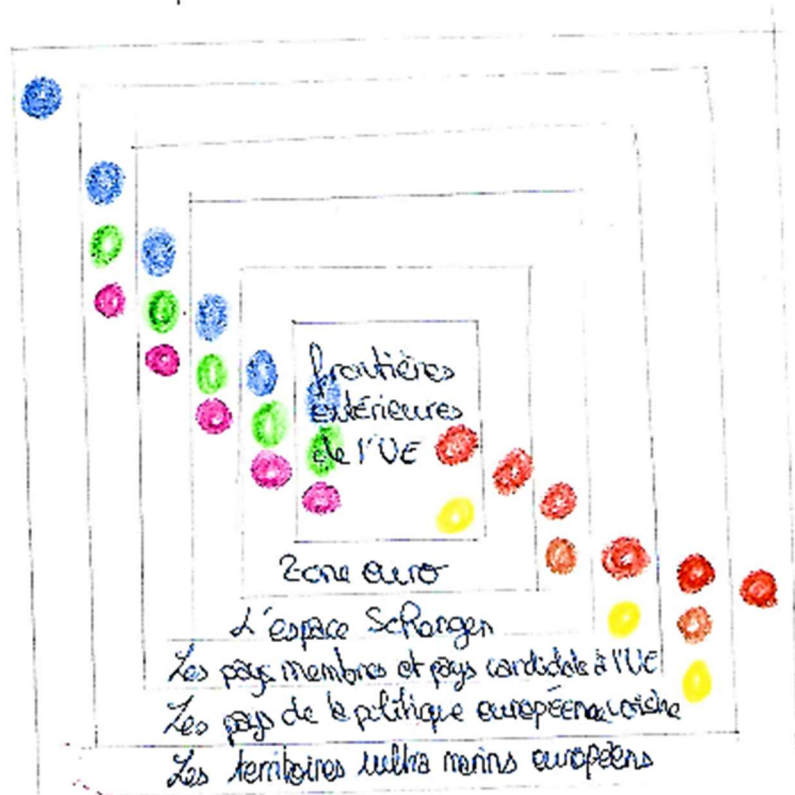 frontières
extérieures
de l'UE
Zone euro
L'espace Schengen
Les pays membres et pays candidats à l'UE
Les pays de la politique européenne voisine
Les territoires ultra marins européens